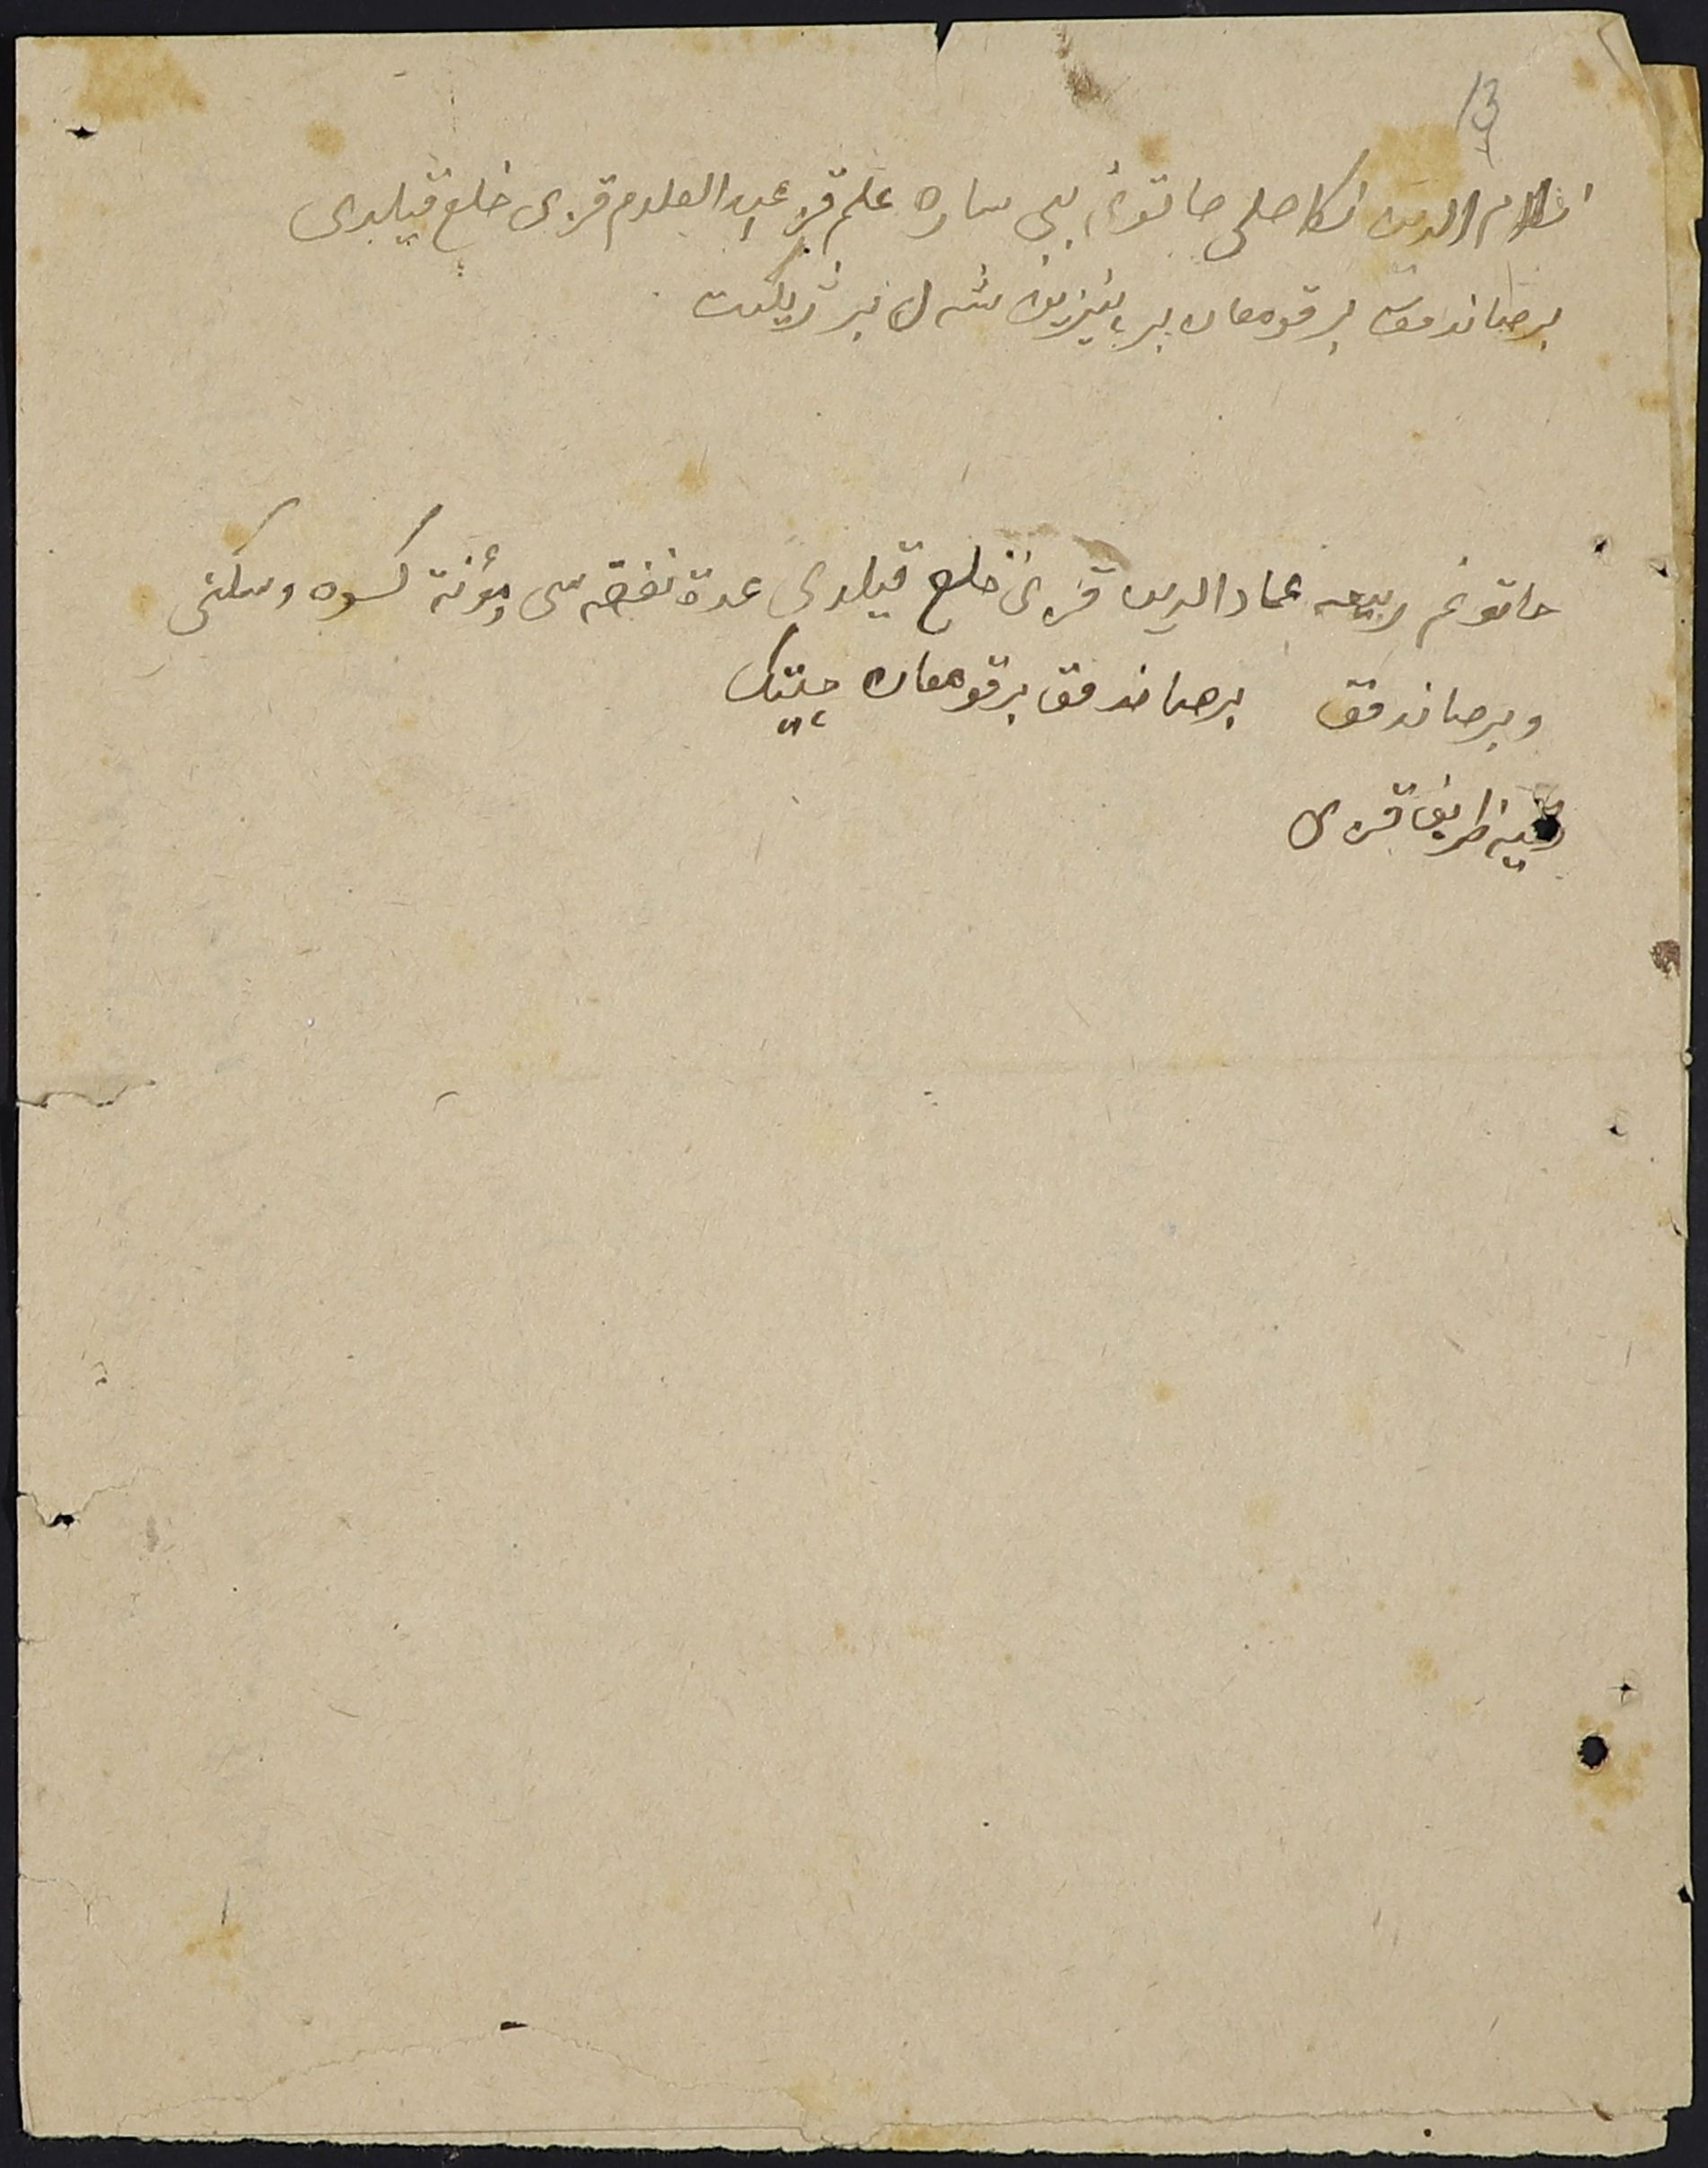 13
الدين نكاحلى خاتونم بى ساره علم قز عبد العلام قزى خلع قيلدى
برصاندوق بر قومغان بر شال بر ژيلكت
خاتونم ربيعه عماد الدين قزىن خلع قيلدى عدة نفقه سى ومؤنة كسوه وسكنى
وبرصاندوق برصاندوق برقومغان چيتيك
ظريف قزى